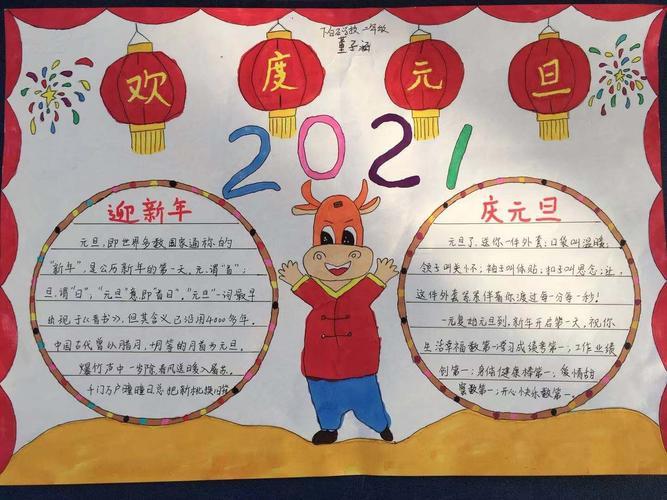 二年级
董子涵
欢度元旦
2021
迎新年
元旦,即世界多数国家通称的
“新年”,是公历新年的第一天。元,谓“首”;
旦,谓“日”;“元旦”意即“首日”。“元旦”一词最早
出现于《晋书》,但其含义已沿用4000多年。
中国古代曾以腊月、十月等的月首为元旦。
爆竹声中一岁除春风送暖入屠苏。
千门万户曈曈日总把新桃换旧符
庆元旦
元旦了,送你一件外套:口袋叫温暖,
领子叫关怀;袖子叫体贴;扣子叫思念;让
这件外套紧紧伴着你渡过每一分每一秒!
一元复始元旦到,新年开启第一天,祝你
生活幸福数第一;学习成绩考第一;工作业绩
创第一;身体健康棒第一;爱情甜
蜜数第一;开心快乐数第一。